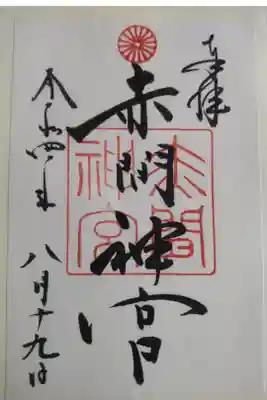 奉拝
赤間神宮
令和四年 八月十九日
赤間神宮